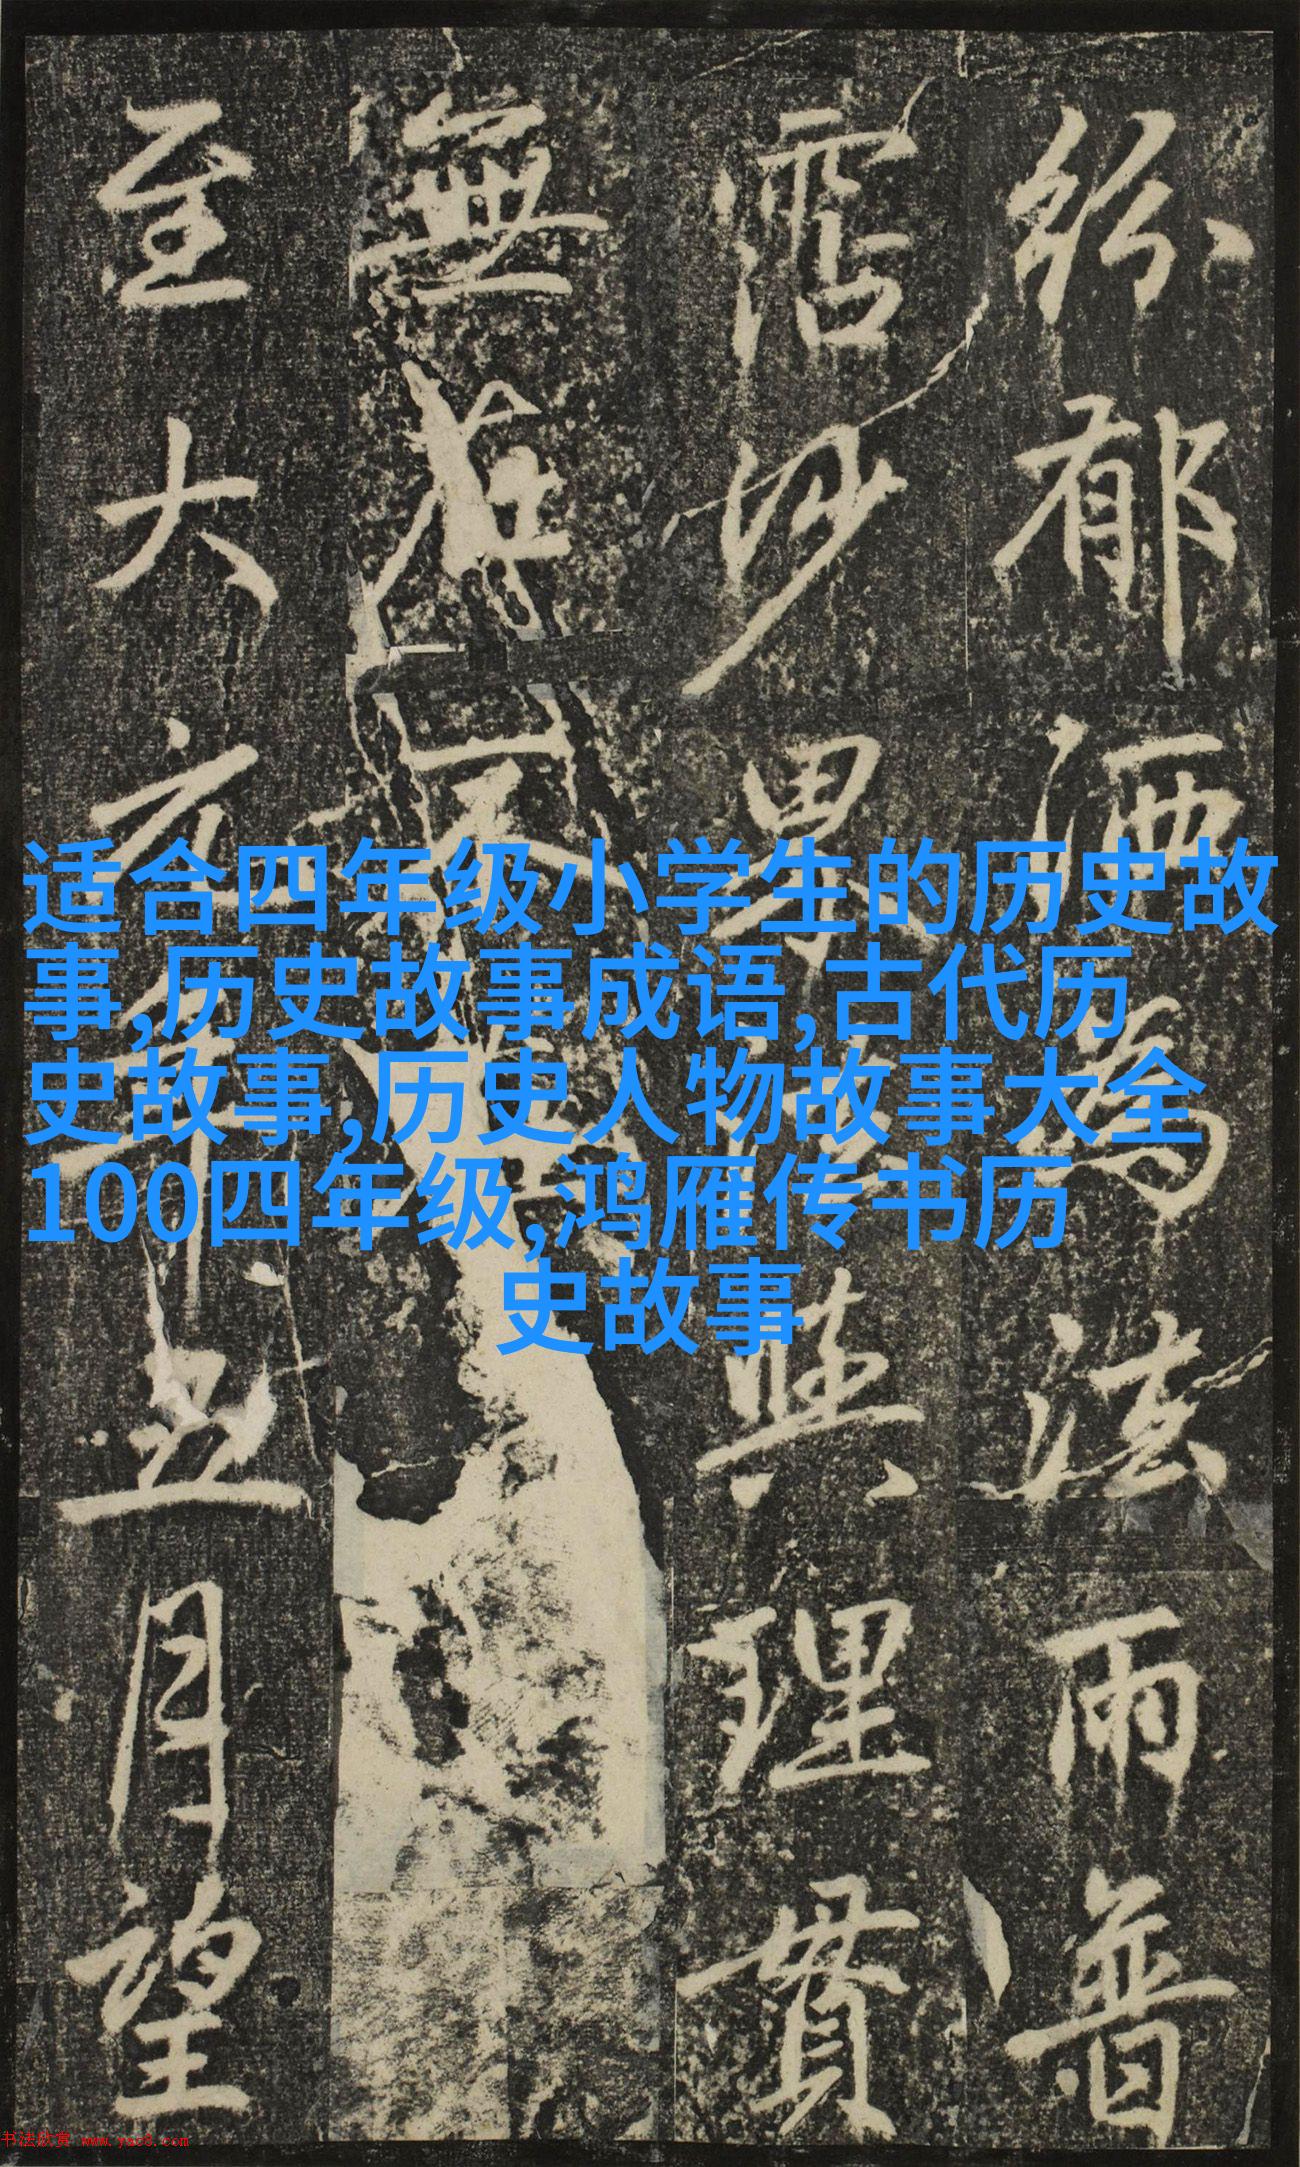 紛郁洒為法雨普
霑沙界理貫
無
至大年五月望
适合四年级小学生的历史故
事,历史故事成语,古代历
史故事,历史人物故事大全
100四年级,鸿雁传书历
史故事
书法欣赏 www.yac8.com